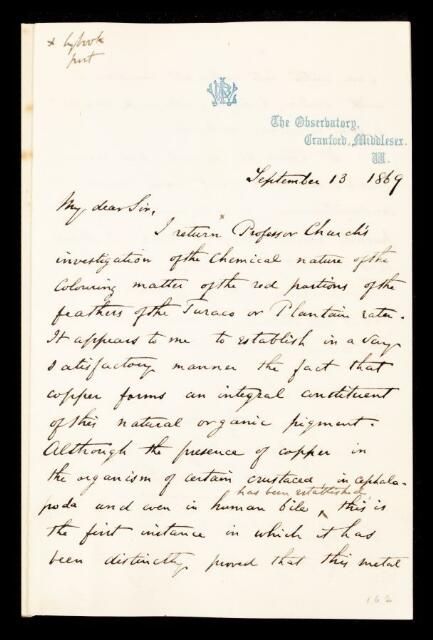 x by book
post
The Observatory,
Cranford, Middlesex.
W.
September 13 1869
My dear Sir,
x
I return Professor Church's
investigation of the Chemical nature of the
Colouring matter of the red portions of the
feathers of the Turaco or Plantain eater.
It appears to me to establish in a very
satisfactory manner the fact that
copper forms an integral constituent
of this natural organic pigment.
Although the presence of copper in
the organism of certain crustacea, in cephalo-
has been established
poda and even in human bile ^ this is
the first instance in which it has
been distinctly proved that this metal
162